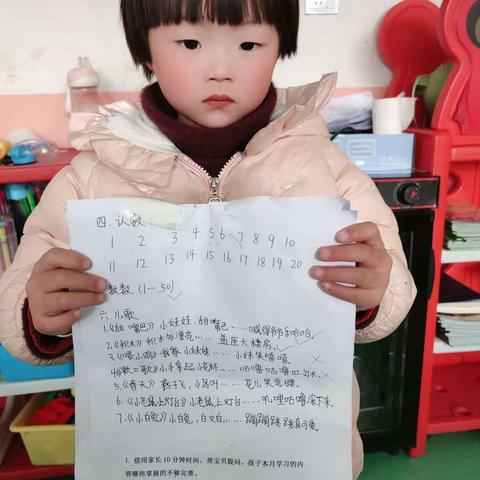 四、认数:
1 2 3 4 5 6 7 8 9 10
11 12 13 14 15 16 17 18 19 20
数数(1—50)
六、儿歌
1.《甜嘴巴》小娃娃,甜嘴巴……喊得爷爷笑哈哈。
2.《积木》积木与漂亮……盖座大楼房。
3.《 》我家小妹妹……小妹笑嘻嘻。
4.《漱口歌》小手拿起小花杯……咕噜咕噜吐出水。
5.《春天》燕子飞,小鸟叫……花儿笑
6.《小老鼠上灯台》小老鼠上灯台……叽里咕噜滚下来。
7.《小白兔》小白兔,白又白……蹦蹦跳跳真可爱。
1. 借用家长10分钟时间,帮宝贝提问,孩子本月学习的内
容哪些掌握的不够完善。